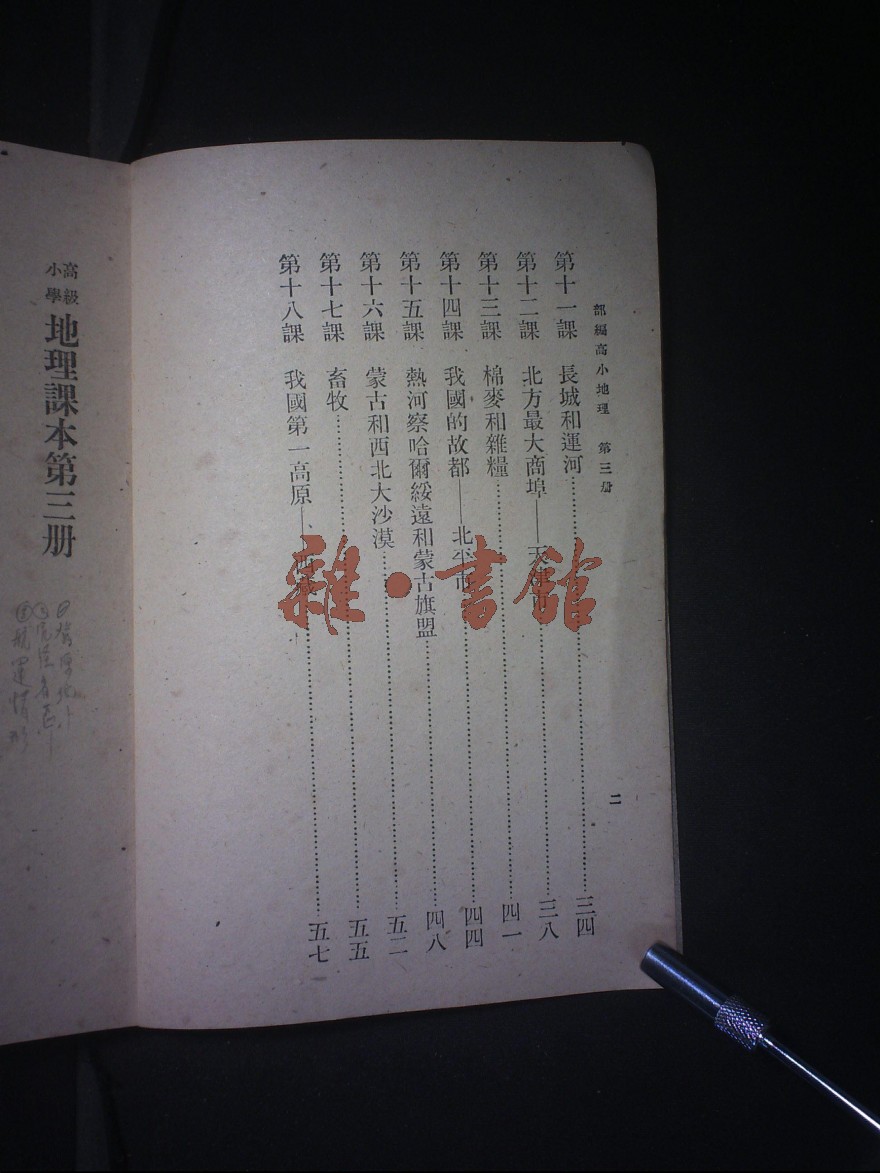 部編高小地理　第三册
第十一課　長城和運河……三四
第十二課　北方最大商埠——天津市……三八
第十三課　棉麥和雜糧……四一
第十四課　我國的故都——北平市……四四
第十五課　熱河察哈爾綏遠和蒙古旗盟……四八
第十六課　蒙古和西北大沙漠……五二
第十七課　畜牧……五五
第十八課　我國第一高原——西……五七
二
高級小學　地理課本第三册
雜·書館